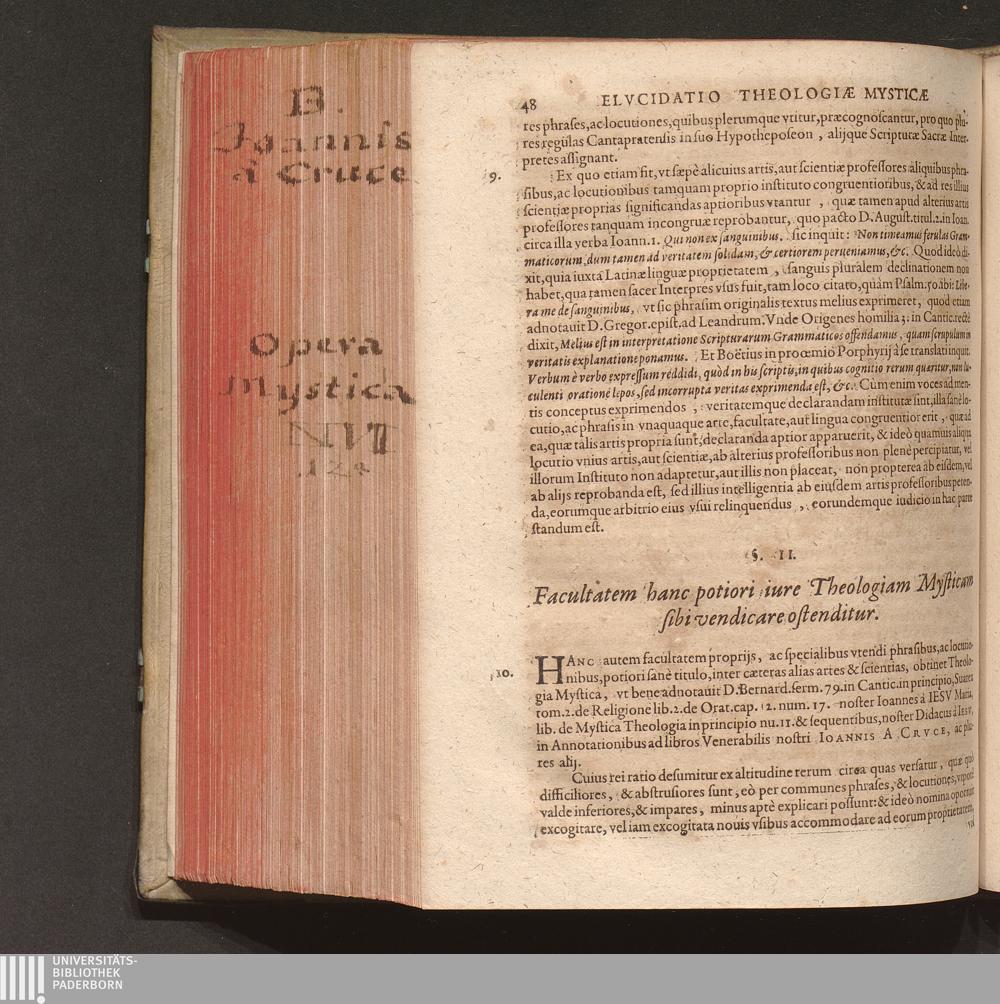 B.
Joannis
à Cruce
Opera
Mystica
48 ELVCIDATIO THEOLOGIÆ MYSTICÆ
res phrases, ac locutiones, quibus plerumque vtitur, præcognoscantur, pro quo plu-
res regulas Cantapratensis in suo Hypotheposeon, alijque Scripturæ Sacræ Inter-
pretes assignant.
9. Ex quo etiam fit, vt sæpè alicuius artis, aut scientiæ professores aliquibus phra-
sibus, ac locutionibus tamquam proprio instituto congruentioribus, & ad res illius
scientiæ proprias significandas aptioribus vtantur, quæ tamen apud alterius artis
professores tanquam incongruæ reprobantur, quo pacto D. August. titul. 2. in Ioan.
circa illa verba Ioann. 1. Qui non ex sanguinibus. sic inquit: Non timeamus ferulas Gram-
maticorum, dum tamen ad veritatem solidam, & certiorem perueniamus, &c. Quod ideò di-
xit, quia iuxta Latinæ linguæ proprietatem, sanguis pluralem declinationem non
habet, qua tamen sacer Interpres vsus fuit, tam loco citato, quàm Psalm. 50. ibi: Libe-
ra me de sanguinibus, vt sic phrasim originalis textus melius exprimeret, quod etiam
adnotauit D. Gregor. epist. ad Leandrum. Vnde Origenes homilia 3. in Cantic. rectè
dixit, Melius est in interpretatione Scripturarum Grammaticos offendamus, quam scrupulum in
veritatis explanatione ponamus. Et Boëtius in proœmio Porphyrij à se translati inquit.
Verbum è verbo expressum reddidi, quòd in his scriptis, in quibus cognitio rerum quæritur, non lu-
culenti oratione lepos, sed incorrupta veritas exprimenda est, &c. Cùm enim voces ad men-
tis conceptus exprimendos, veritatemque declarandam institutæ sint, illa sanè lo-
cutio, ac phrasis in vnaquaque arte, facultate, aut lingua congruentior erit, quæ ad
ea, quæ talis artis propria sunt, declaranda aptior apparuerit, & ideò quamuis aliqua
locutio vnius artis, aut scientiæ, ab alterius professoribus non plenè percipiatur, vel
illorum Instituto non adaptetur, aut illis non placeat, non propterea ab eisdem, vel
ab alijs reprobanda est, sed illius intelligentia ab eiusdem artis professoribus peten-
da, eorumque arbitrio eius vsui relinquendus, eorundemque iudicio in hac parte
standum est.
§. II.
Facultatem hanc potiori iure Theologiam Mysticam
sibi vendicare ostenditur.
10. HANC autem facultatem proprijs, ac specialibus vtendi phrasibus, ac locutio-
nibus, potiori sanè titulo, inter cæteras alias artes & scientias, obtinet Theolo-
gia Mystica, vt bene adnotauit D. Bernard. serm. 79. in Cantic. in principio, Suarez
tom. 2. de Religione lib. 2. de Orat. cap. 12. num. 17. noster Ioannes à IESV Maria,
lib. de Mystica Theologia in principio nu. 11. & sequentibus, noster Didacus à IESV,
in Annotationibus ad libros Venerabilis nostri IOANNIS A CRVCE, ac plu-
res alij.
Cuius rei ratio desumitur ex altitudine rerum circa quas versatur, quæ quò
difficiliores, & abstrusiores sunt, eò per communes phrases, & locutiones, vtpotè
valde inferiores, & impares, minus aptè explicari possunt: & ideò nomina oportuit
excogitare, vel iam excogitata nouis vsibus accommodare ad eorum proprietatem,
UNIVERSITÄTS-
BIBLIOTHEK
PADERBORN